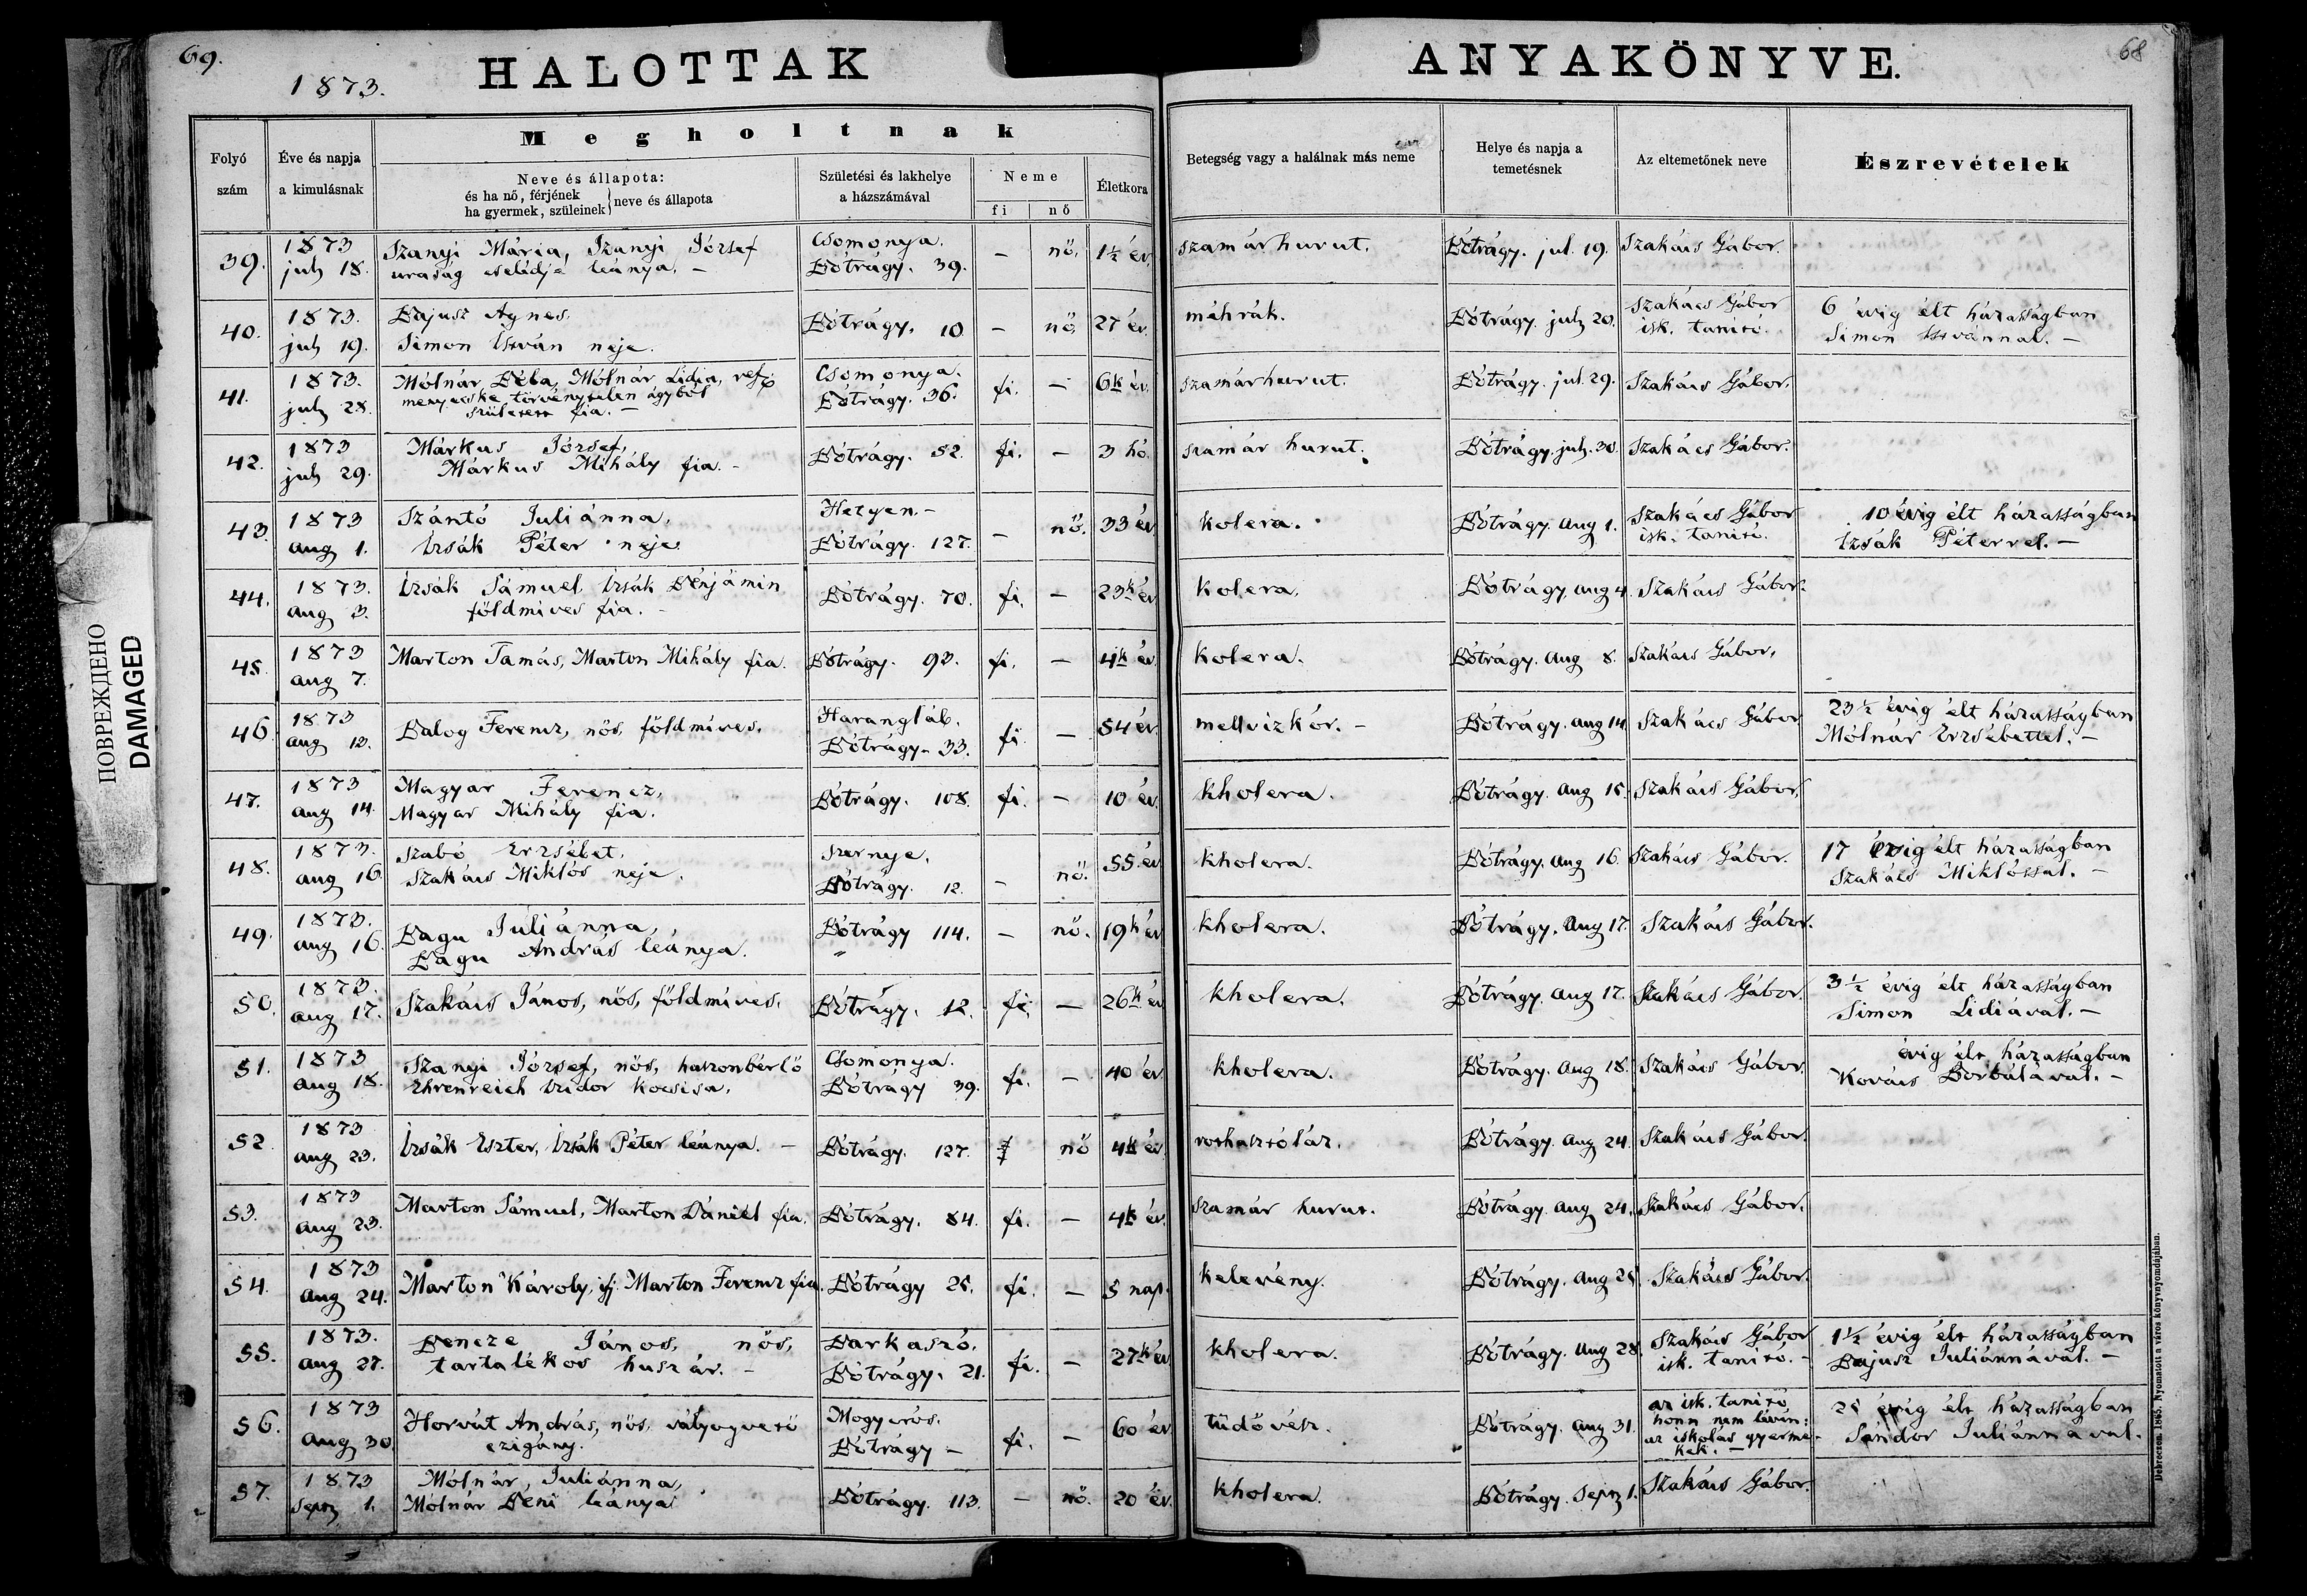 69.
HALOTTAK
ANYAKÖNYVE.
68
1873.
Megholtnak
Folyó szám
Éve és napja a kimulásnak
Neve és állapota:
és ha nő, férjének
ha gyermek, szüleinek
neve és állapota
Születési és lakhelye a házszámával
Neme
fi
nő
Életkora
Betegség vagy a halálnak más neme
Helye és napja a temetésnek
Az eltemetőnek neve
Észrevételek
39. 1873 july 18. Szanyi Mária, Szanyi József uraság cselédje leánya. – Csomonya. Bótrágy. 39. – nő. 1½ év. szamárhurut. Bótrágy. jul. 19. Szakács Gábor.
40. 1873. july 19. Bajusz Ágnes. Simon István neje. Bótrágy. 10 – nő. 27 év. méhrák. Bótrágy. july 20. Szakács Gábor isk. tanitó. 6 évig élt házasságban Simon Istvánnal. –
41. 1873. july 28. Mólnár Béla, Mólnár Lidia, ref. menyecske törvénytelen ágyból született fia. – Csomonya. Bótrágy. 36. fi. – 6k év. szamárhurut. Bótrágy. jul. 29. Szakács Gábor.
42. 1873 july 29. Márkus József, Márkus Mihály fia. – Bótrágy. 52. fi. – 3 hó. szamár hurut. Bótrágy. july. 30. Szakács Gábor.
43. 1873 aug 1. Szántó Juliánna, Izsák Péter neje. Hetyen. – Bótrágy. 127. – nő. 33 év. kolera. Bótrágy. aug 1. Szakács Gábor isk. tanitó. 10 évig élt házasságban Izsák Péterrel. –
44. 1873. aug 3. Izsák Sámuel, Izsák Bénjámin földmives fia. – Bótrágy. 70. fi. – 23k év. kolera. Bótrágy. aug 4. Szakács Gábor.
45. 1873 aug 7. Marton Tamás, Marton Mihály fia. Bótrágy. 93. fi. – 4k év. kolera. Bótrágy. aug 8. Szakács Gábor.
46. 1873 aug 13. Balog Ferencz, nős, földmíves. Harangláb. Bótrágy. 33. fi. – 54 év. mellvizkór. – Bótrágy. aug 14. Szakács Gábor 23½ évig élt házasságban Mólnár Erzsébettel. –
47. 1873 aug 14. Magyar Ferencz, Magyar Mihály fia. Bótrágy. 108. fi. – 10 év. kholera. Bótrágy. aug 15. Szakács Gábor.
48. 1873. aug 16. Szabó Erzsébet, Szakács Miklós neje. Szernye. Bótrágy. 12. – nő. 55 év. kholera. Bótrágy. aug 16. Szakács Gábor. 17 évig élt házasságban Szakács Miklóssal. –
49. 1873. aug 16. Bagu Juliánna, Bagu András leánya. Bótrágy 114. " – nő. 19k év kholera. Bótrágy. aug 17. Szakács Gábor.
50. 1873. aug 17. Szakács János, nős, földmíves. Bótrágy. 12. fi. – 26k év kholera. Bótrágy. aug 17. Szakács Gábor. 3½ évig élt házasságban Simon Lidiával. –
51. 1873 aug 18. Szanyi József, nős, haszonbérlő Ehrenreich Izidor kocsisa. Csomonya. Bótrágy 39. fi. – 40 év kholera. Bótrágy. aug 18. Szakács Gábor. évig élt házasságban Kovács Borbálával. –
52. 1873 aug 23. Izsák Eszter, Izsák Péter leánya. – Bótrágy. 127. nő 4k év. Bótrágy. aug 24. Szakács Gábor.
53. 1873 aug 23. Marton Sámuel, Marton Dániel fia. Bótrágy. 84. fi. – 4k év. szamár hurut. Bótrágy. aug 24. Szakács Gábor.
54. 1873 aug 24. Marton Károly, ifj. Marton Ferencz fia. Bótrágy 25. fi. – 5 nap. kelevény. Bótrágy. aug 25. Szakács Gábor.
55. 1873. aug 27. Bencze János, nős, tartalékos huszár. – Barkaszó. Bótrágy. 21. fi. – 27k év kholera. Bótrágy. aug 28. Szakács Gábor isk. tanitó. – 1½ évig élt házasságban Bajusz Juliánnával. –
56. 1873 aug 30. Horvát András, nős, vályogvető czigány. Mogyorós. Bótrágy – fi. – 60 év. tüdővész. Bótrágy. aug 31. az isk. tanitó honn nem lévén: az iskolás gyermekek. – 25 évig élt házasságban Sándor Juliánnával.
57. 1873 Sept 1. Mólnár Juliánna, Mólnár Béni leánya Bótrágy. 113. – nő. 20 év. kholera. Bótrágy. Sept 1. Szakács Gábor.
ПОВРЕЖДЕНО
DAMAGED
Debreczen. 1865. Nyomatott a város könyvnyomdájában.